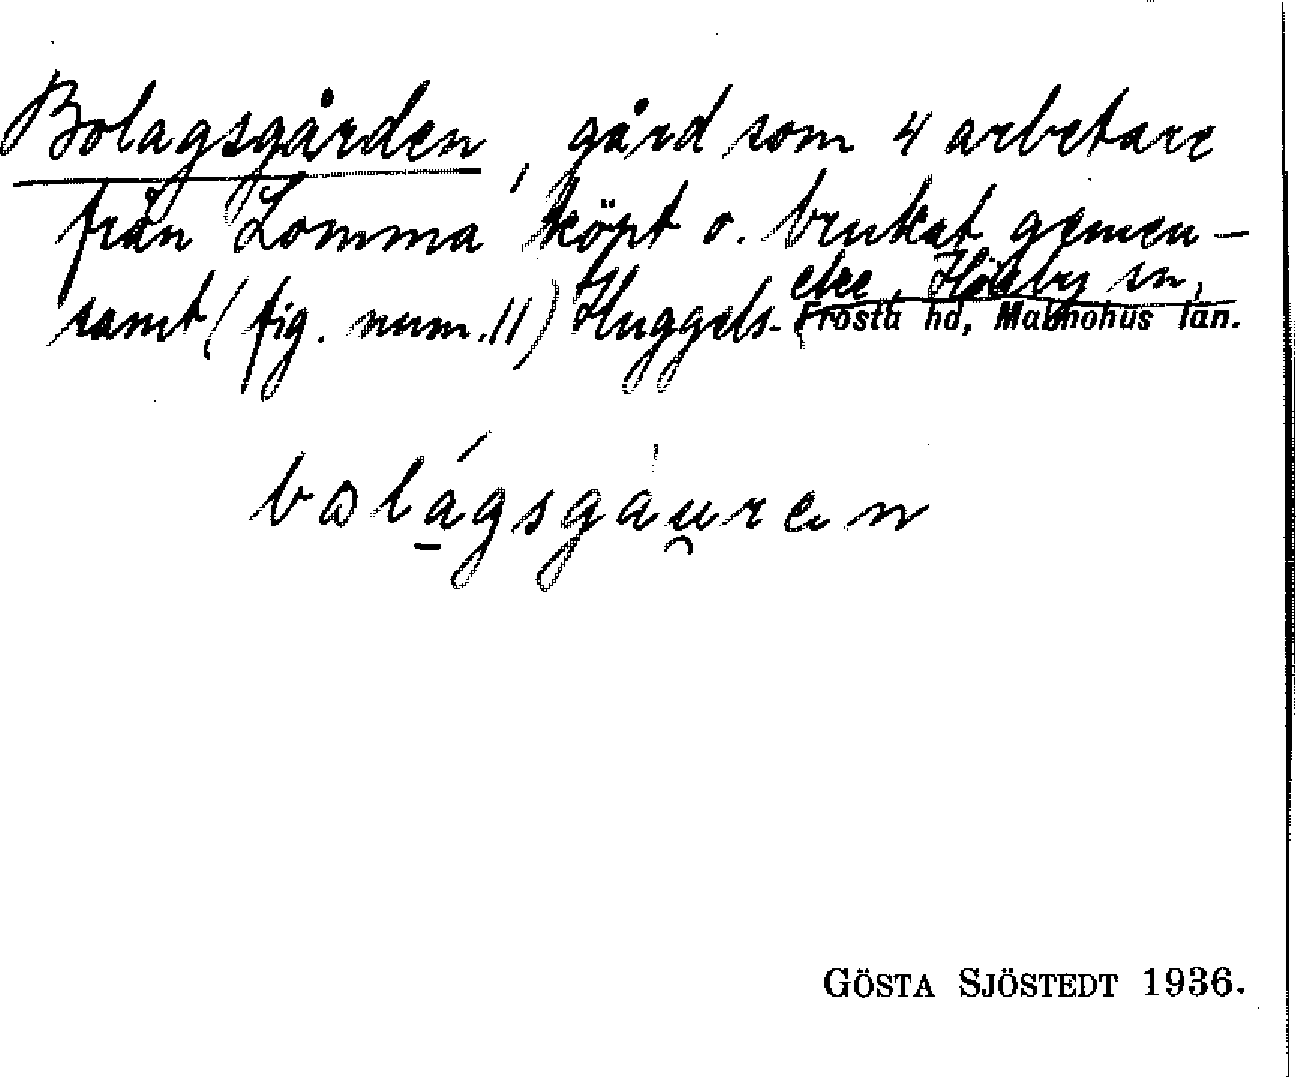 Bolagsgården, gård som 4 arbetare
från Lomma köpt o. brukat gemen-
samt (fig. num. 11) Huggels-
etre, Högby sn,
Frosta hd, Malmöhus län.
bolágsgáuren
GÖSTA SJÖSTEDT 1936.